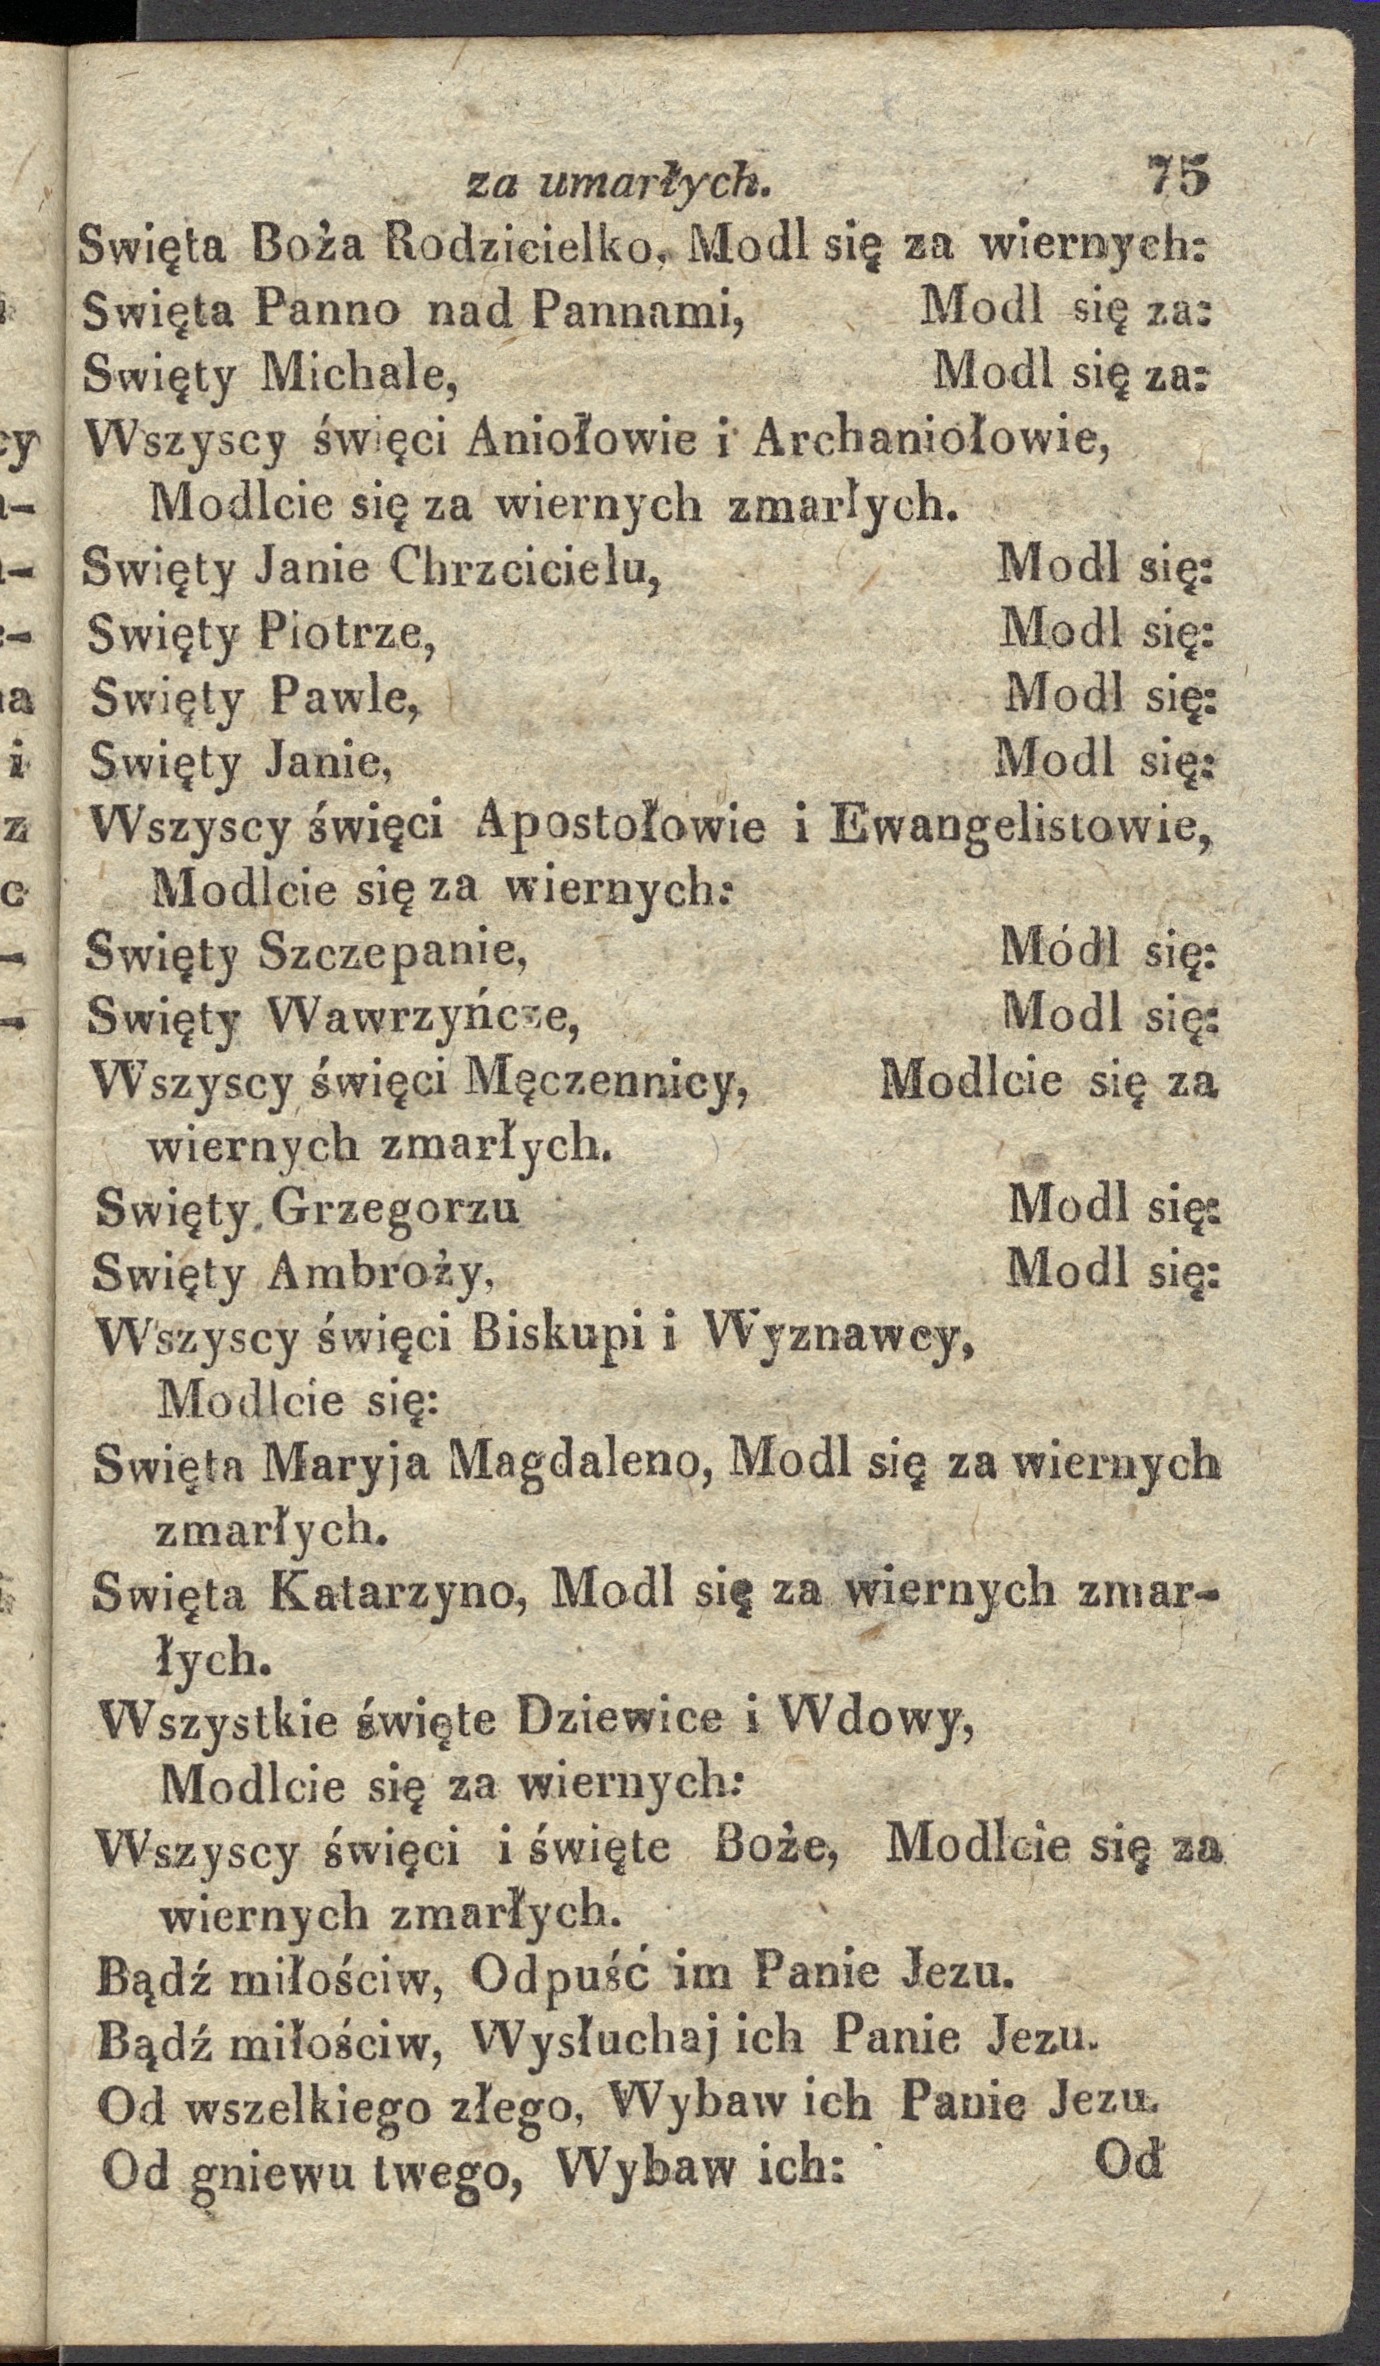 za umarłych. 75
Swięta Boża Rodzicielko, Modl się za wiernych:
Swięta Panno nad Pannami, Modl się za:
Swięty Michale, Modl się za:
Wszyscy święci Aniołowie i Archaniołowie,
Modlcie się za wiernych zmarłych.
Swięty Janie Chrzcicielu, Modl się:
Swięty Piotrze, Modl się:
Swięty Pawle, Modl się:
Swięty Janie, Modl się:
Wszyscy święci Apostołowie i Ewangelistowie,
Modlcie się za wiernych:
Swięty Szczepanie, Módl się:
Swięty Wawrzyńcze, Modl się:
Wszyscy święci Męczennicy, Modlcie się za
wiernych zmarłych.
Swięty Grzegorzu Modl się:
Swięty Ambroży, Modl się:
Wszyscy święci Biskupi i Wyznawcy,
Modlcie się:
Swięta Maryja Magdaleno, Modl się za wiernych
zmarłych.
Swięta Katarzyno, Modl się za wiernych zmar-
łych.
Wszystkie święte Dziewice i Wdowy,
Modlcie się za wiernych:
Wszyscy święci i święte Boże, Modlcie się za
wiernych zmarłych.
Bądź miłościw, Odpuść im Panie Jezu.
Bądź miłościw, Wysłuchaj ich Panie Jezu.
Od wszelkiego złego, Wybaw ich Panie Jezu.
Od gniewu twego, Wybaw ich: Od